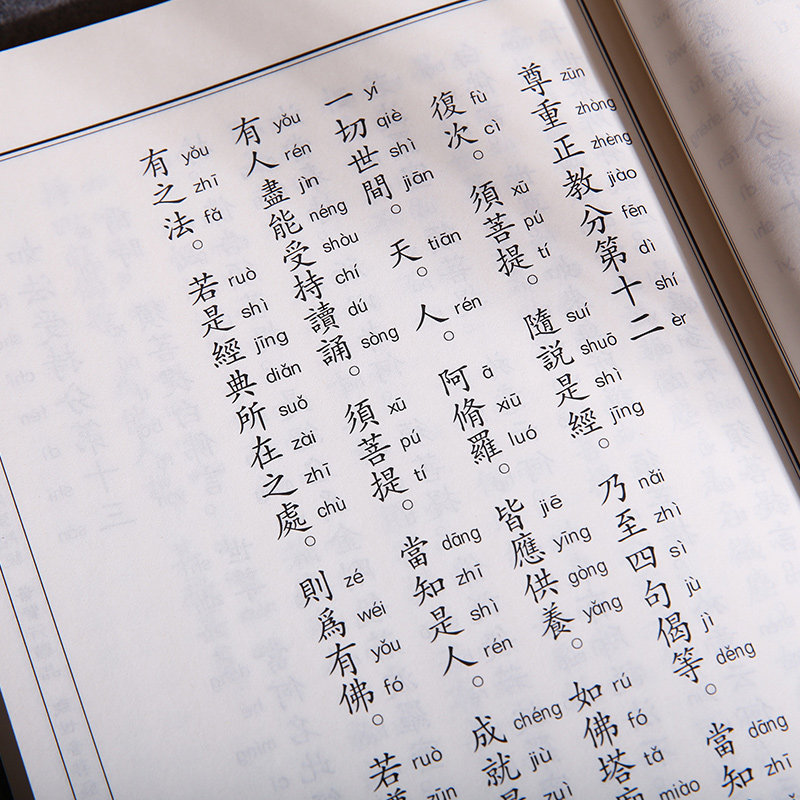 尊重正教分第十二
zūn zhòng zhèng jiào fēn dì shí èr
復次。須菩提。隨說是經。乃至四句偈等。當知
fù cì xū pú tí suí shuō shì jīng nǎi zhì sì jù jì děng dāng zhī
一切世間。天。人。阿脩羅。皆應供養。如佛塔
yí qiè shì jiān tiān rén ā xiū luó jiē yīng gòng yǎng rú fó tǎ miào
有人盡能受持讀誦。須菩提。當知是人。成就
yǒu rén jìn néng shòu chí dú sòng xū pú tí dāng zhī shì rén chéng jiù zuì
有之法。若是經典所在之處。則爲有佛。若
yǒu zhī fǎ ruò shì jīng diǎn suǒ zài zhī chù zé wéi yǒu fó ruò zūn